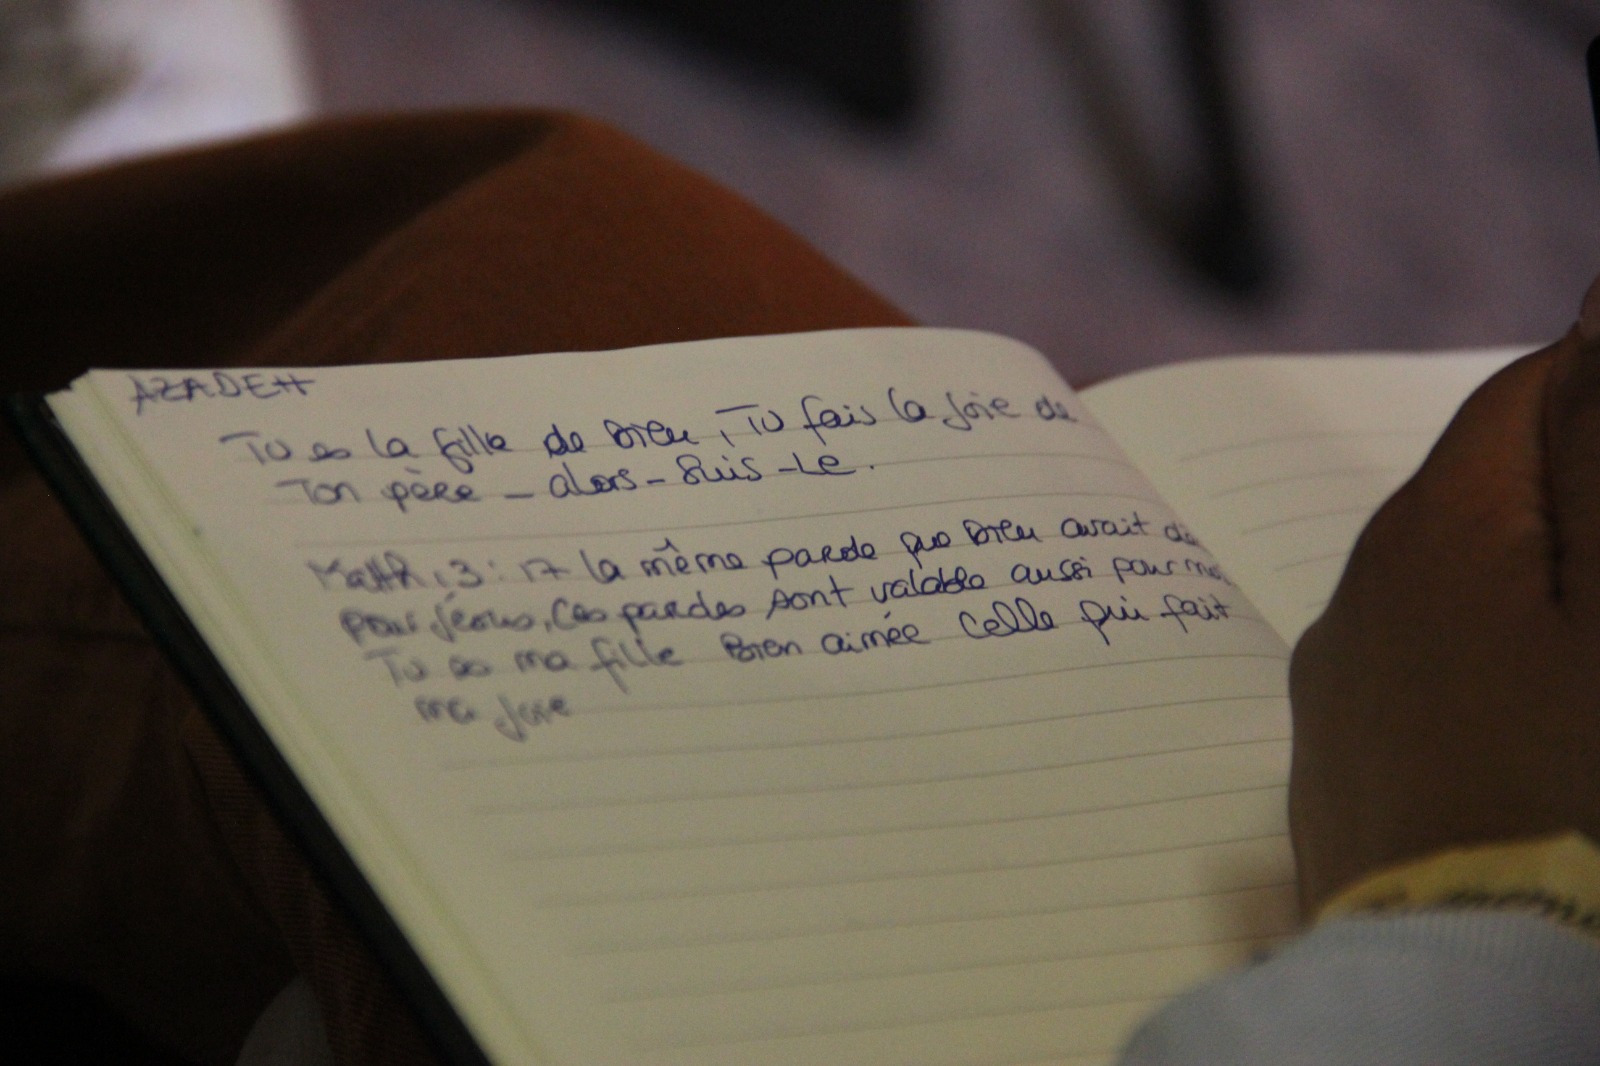 AZADEH
Tu es la fille de Dieu, Tu fais la joie de
Ton père - alors - suis - Le.
Matth, 3: 17 la même parole que Dieu avait dit
pour Jésus, Ces paroles sont valable aussi pour moi
Tu es ma fille Bien aimée celle qui fait
ma joie